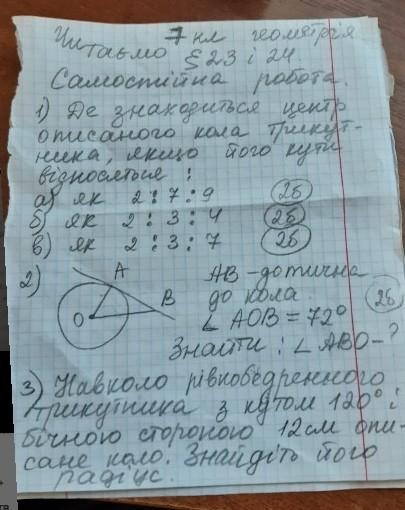 7 кл геометрія
Читаємо § 23 і 24
Самостійна робота.
1) Де знаходиться центр
описаного кола трикут-
ника, якщо його кути
відносяться :
а) як 2 : 7 : 9 2б
б) як 2 : 3 : 4 2б
в) як 2 : 3 : 7 2б
2) A B O
AB - дотична
до кола. 2б
∠ AOB = 72°
Знайти : ∠ ABO - ?
3) Навколо рівнобедренного
трикутника з кутом 120° і
бічною стороною 12 см опи-
сане коло. Знайдіть його
радіус.